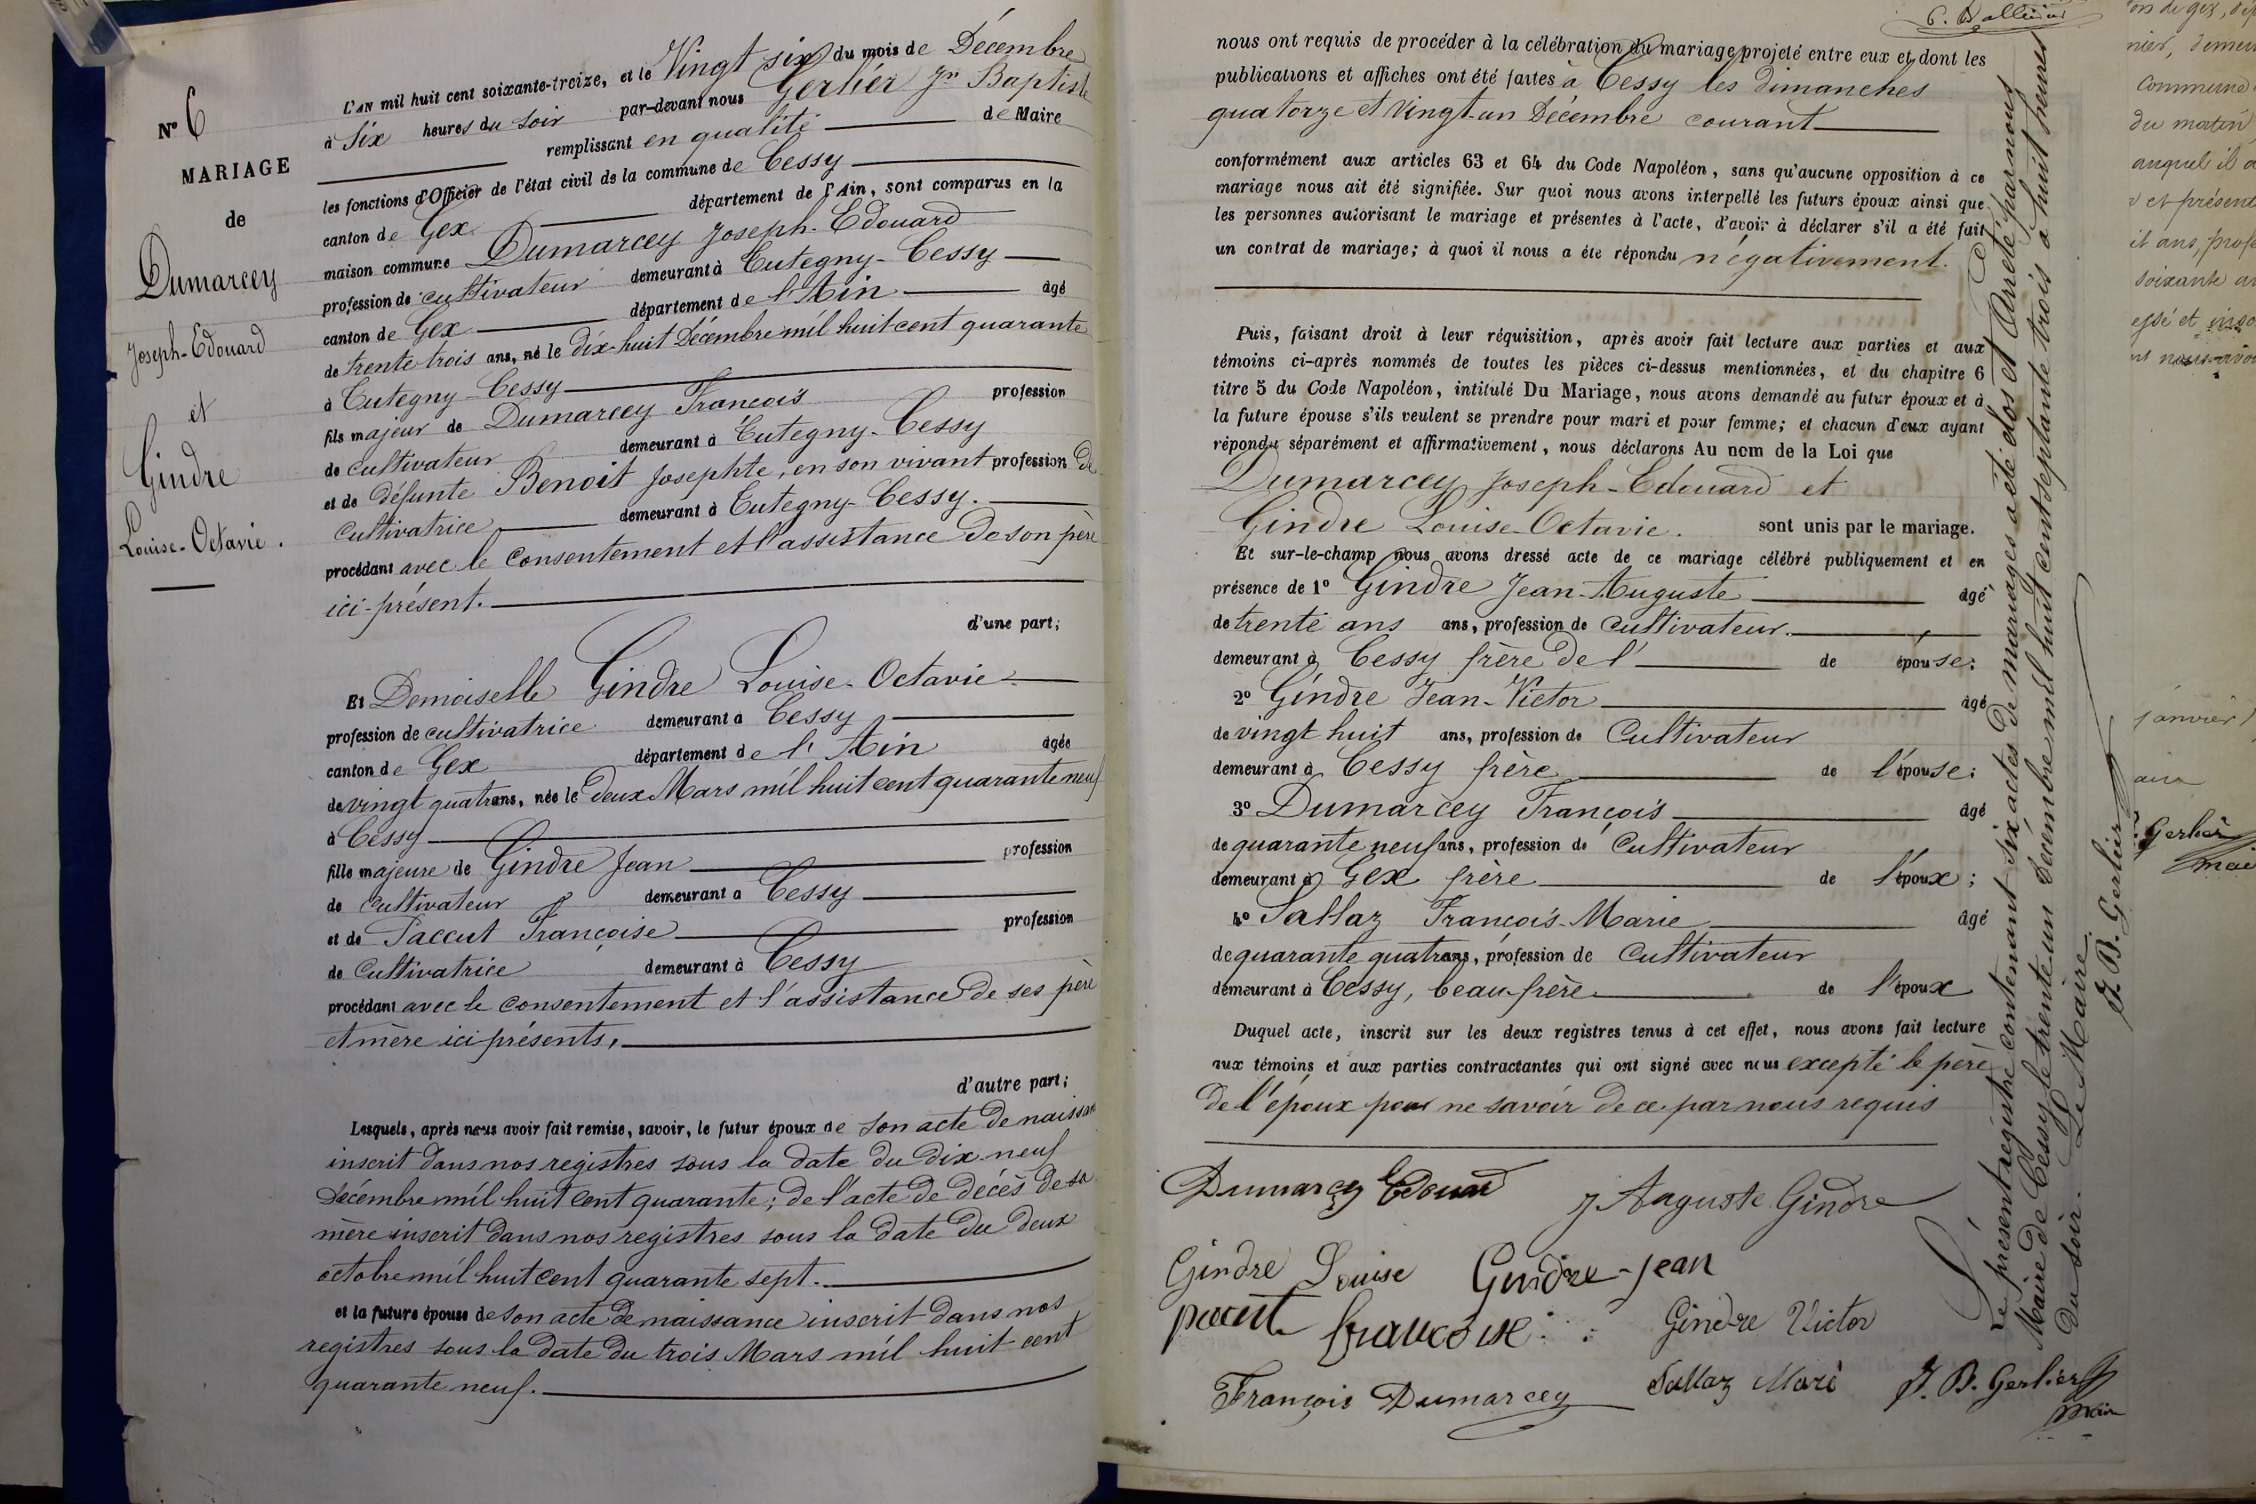 N° 6
MARIAGE
de
Dumarcey
Joseph-Edouard
et
Gindre
Louise-Octavie.
L'AN mil huit cent soixante-treize, et le Vingt six du mois de Décembre
à Six heures du soir par-devant nous Gerlier Jn Baptiste
remplissant en qualité de Maire
les fonctions d'Officier de l'état civil de la commune de Cessy
canton de Gex département de l'Ain, sont comparus en la
maison commune Dumarcey Joseph-Edouard
profession de cultivateur demeurant à Tutegny-Cessy
canton de Gex département de l'Ain âgé
de trente trois ans, né le dix-huit Décembre mil huit cent quarante
à Tutegny-Cessy
fils majeur de Dumarcey François profession
de cultivateur demeurant à Tutegny-Cessy
et de défunte Benoit Josephte, en son vivant profession de
cultivatrice demeurant à Tutegny-Cessy.
procédant avec le consentement et l'assistance de son père
ici-présent.
d'une part;
Et Demoiselle Gindre Louise-Octavie
profession de cultivatrice demeurant à Cessy
canton de Gex département de l'Ain âgée
de vingt quatre ans, née le deux Mars mil huit cent quarante neuf
à Cessy
fille majeure de Gindre Jean profession
de cultivateur demeurant à Cessy
et de Paccut Françoise profession
de cultivatrice demeurant à Cessy
procédant avec le consentement et l'assistance de ses père
et mère ici présents,
d'autre part;
Lesquels, après nous avoir fait remise, savoir, le futur époux de son acte de naissance
inscrit dans nos registres sous la date du dix-neuf
Décembre mil huit cent quarante; de l'acte de décès de sa
mère inscrit dans nos registres sous la date du deux
octobre mil huit cent quarante sept.
et la future épouse de son acte de naissance inscrit dans nos
registres sous la date du trois Mars mil huit cent
quarante neuf.
nous ont requis de procéder à la célébration du mariage projeté entre eux et dont les
publications et affiches ont été faites à Cessy les dimanches
quatorze et vingt-un Décembre courant
conformément aux articles 63 et 64 du Code Napoléon, sans qu'aucune opposition à ce
mariage nous ait été signifiée. Sur quoi nous avons interpellé les futurs époux ainsi que
les personnes autorisant le mariage et présentes à l'acte, d'avoir à déclarer s'il a été fait
un contrat de mariage; à quoi il nous a été répondu négativement.
Puis, faisant droit à leur réquisition, après avoir fait lecture aux parties et aux
témoins ci-après nommés de toutes les pièces ci-dessus mentionnées, et du chapitre 6
titre 5 du Code Napoléon, intitulé Du Mariage, nous avons demandé au futur époux et à
la future épouse s'ils veulent se prendre pour mari et pour femme; et chacun d'eux ayant
répondu séparément et affirmativement, nous déclarons Au nom de la Loi que
Dumarcey Joseph-Edouard et
Gindre Louise-Octavie. sont unis par le mariage.
Et sur-le-champ nous avons dressé acte de ce mariage célébré publiquement et en
présence de 1° Gindre Jean-Auguste âgé
de trente ans ans, profession de cultivateur.
demeurant à Cessy frère de l' de épouse;
2° Gindre Jean-Victor âgé
de vingt huit ans, profession de Cultivateur
demeurant à Cessy frère de l'épouse;
3° Dumarcey François âgé
de quarante neuf ans, profession de Cultivateur
demeurant à Gex frère de l'époux;
4° Sallaz François-Marie âgé
de quarante quatre ans, profession de Cultivateur
demeurant à Cessy, beau-frère de l'époux
Duquel acte, inscrit sur les deux registres tenus à cet effet, nous avons fait lecture
aux témoins et aux parties contractantes qui ont signé avec nous excepté le père
de l'époux pour ne savoir de ce par nous requis
Dumarcey Edouard J Auguste Gindre
Gindre Louise Gindre-Jean
paccut françoise Gindre Victor
François Dumarcey Sallaz Marie J. B. Gerlier
Maire
Le présent registre contenant six actes de mariages a été clos et Arrêté par nous
Maire de Cessy le trente-un Décembre mil huit cent septante trois à huit heures
du soir. Le Maire.
J. B. Gerlier
commune
du matin
auquel il a
et présent
soixante
janvier
Gerlier